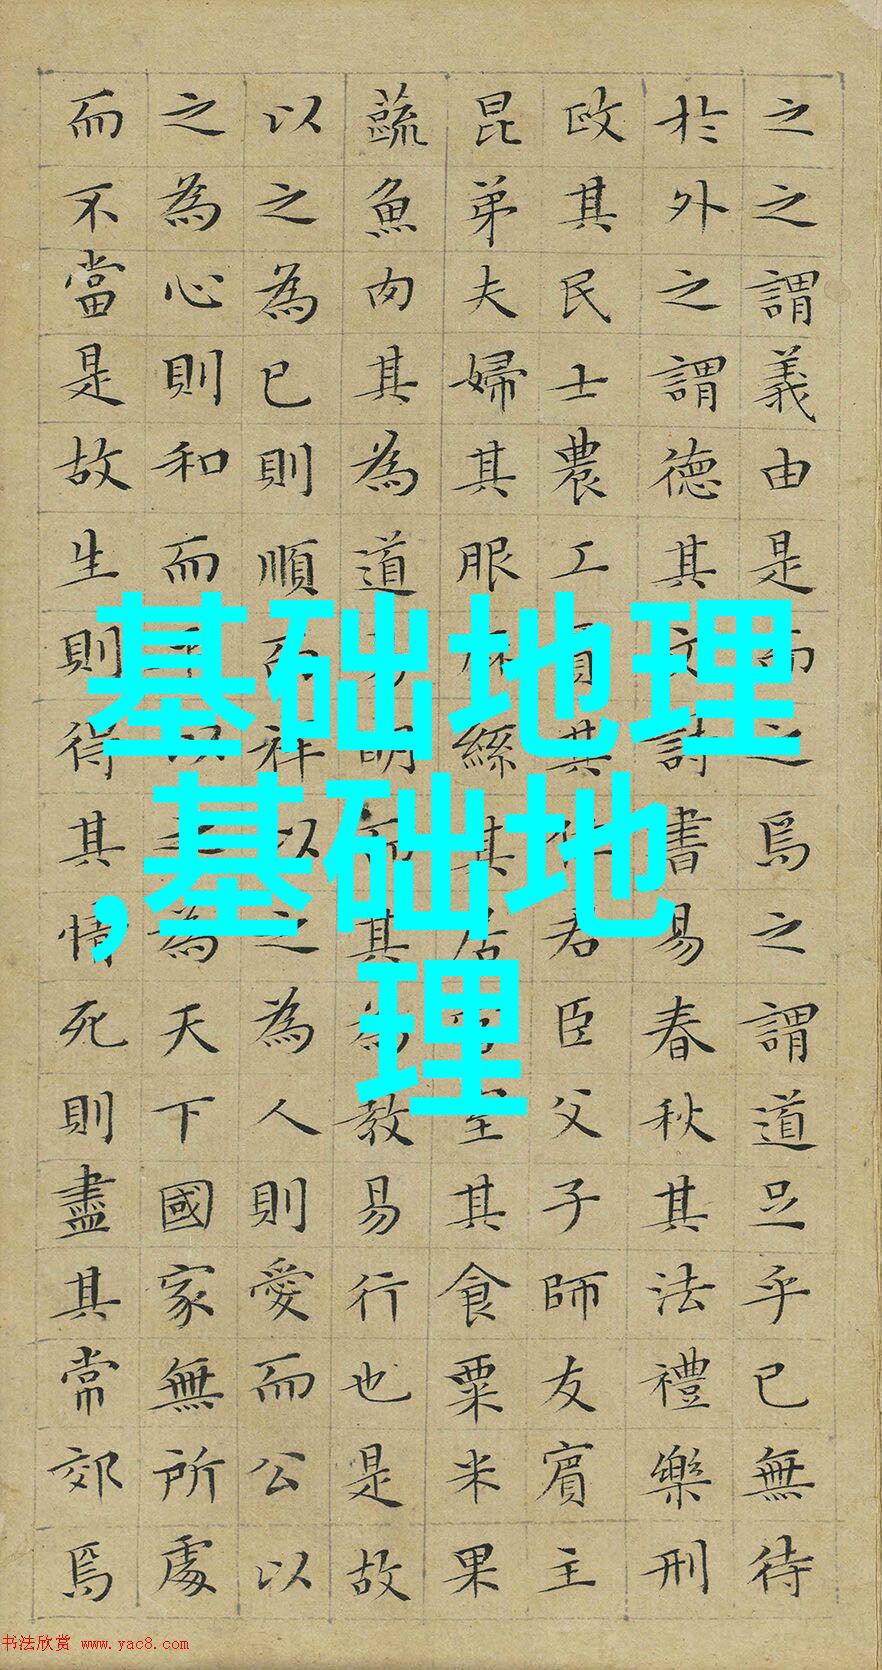 之之謂義由是而之焉之謂道足乎已無待
於外之謂德其文詩書易春秋其法禮樂刑
政其民士農工賈其位君臣父子師友賓主
昆弟夫婦其服麻絲其居宮室其食粟米果
蔬魚肉其為道易明而其為教易行也是故
以之為已則順而祥以之為人則愛而公以
之為心則和而平以之為天下國家無所處
而不當是故生則得其情死則盡其常郊焉
基础地理
,基础地
理
书法欣赏 www.yac8.com